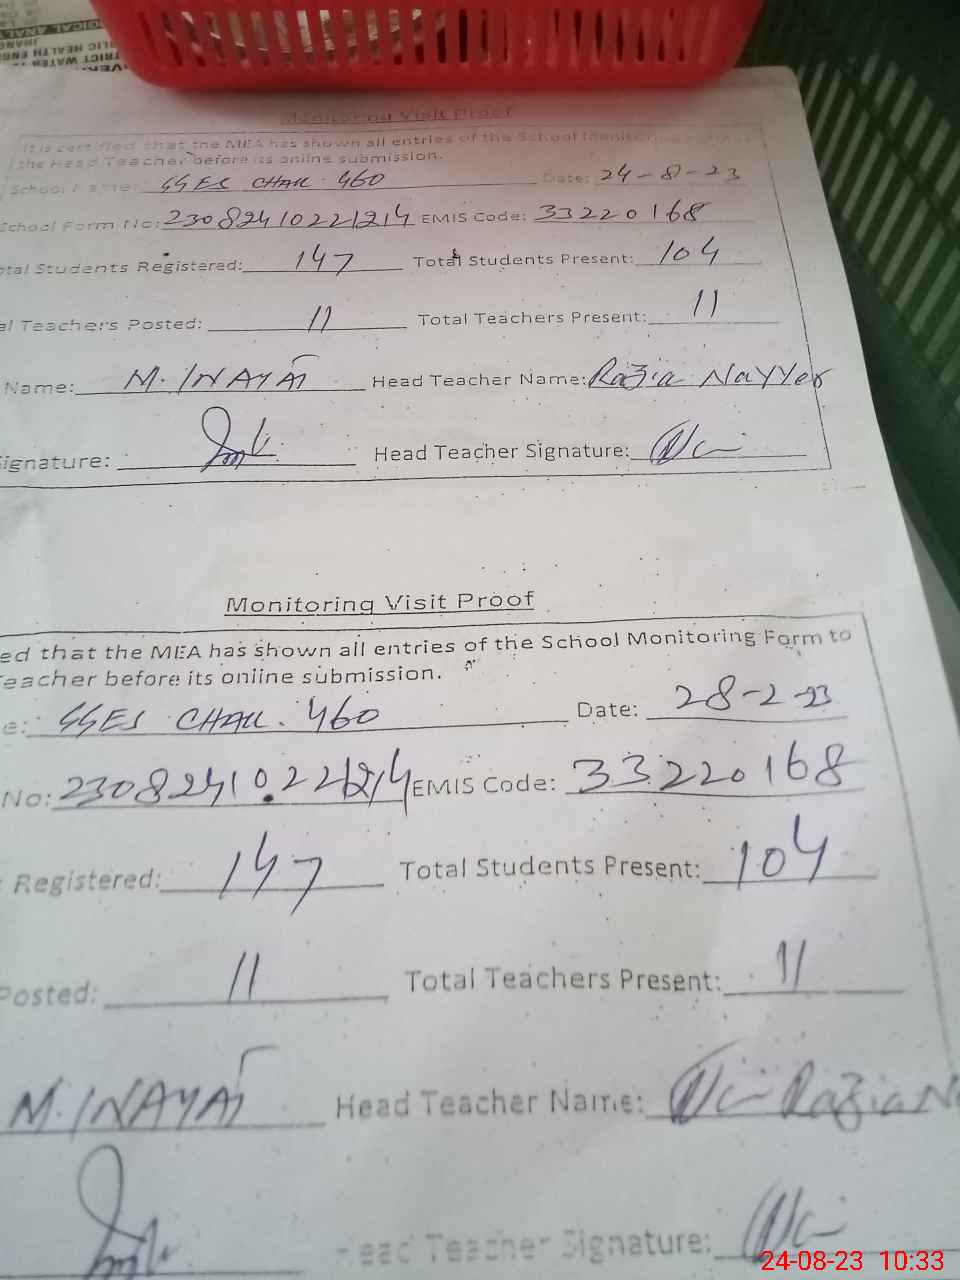 Monitoring Visit Proof
It is certified that the MEA has shown all entries of the School Monitoring
the Head Teacher before its online submission.
School Name: GGES CHAK. 460 Date: 24-8-23
School Form No: 23082410221214 EMIS Code: 33220168
otal Students Registered: 147 Total Students Present: 104
al Teachers Posted: 11 Total Teachers Present: 11
Name: M. INAYAT Head Teacher Name: Razia Nayyer
ignature: Head Teacher Signature:
Monitoring Visit Proof
ed that the MEA has shown all entries of the School Monitoring Form to
eacher before its online submission.
e: GGES CHAK. 460 Date: 28-2-23
No: 23082410221214 EMIS Code: 33220168
Registered: 147 Total Students Present: 104
Posted: 11 Total Teachers Present: 11
M. INAYAT Head Teacher Name: Razia Na
Head Teacher Signature:
24-08-23 10:33